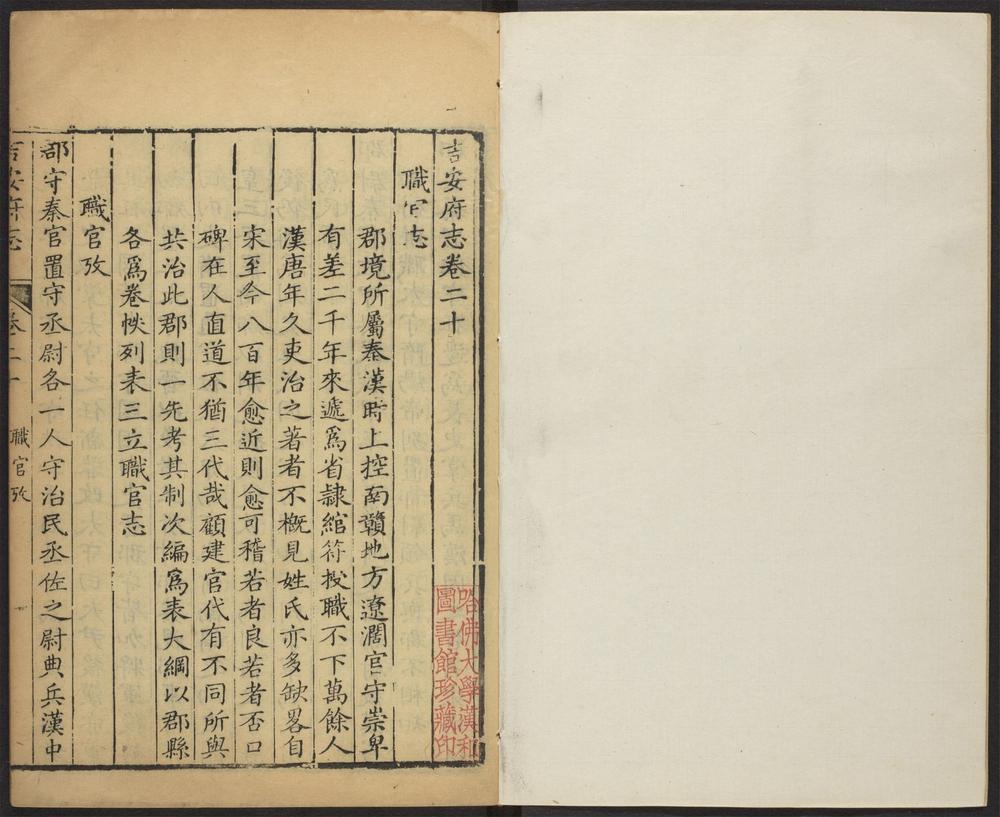 吉安府志卷二十
職官志
郡境所屬秦漢時上控南贛地方遼濶官守崇卑
有差二千年來遞爲省隸綰符授職不下萬餘人
漢唐年久吏治之著者不概見姓氏亦多缺畧自
宋至今八百年愈近則愈可稽若者良若者否口
碑在人直道不猶三代哉顧建官代有不同所與
共治此郡則一先考其制次編爲表大綱以郡縣
各爲卷帙列表三立職官志
職官攷
郡守秦官置守丞尉各一人守治民丞佐之尉典兵漢中
吉安府志
卷二十
職官攷
哈佛大學漢和
圖書館珍藏印